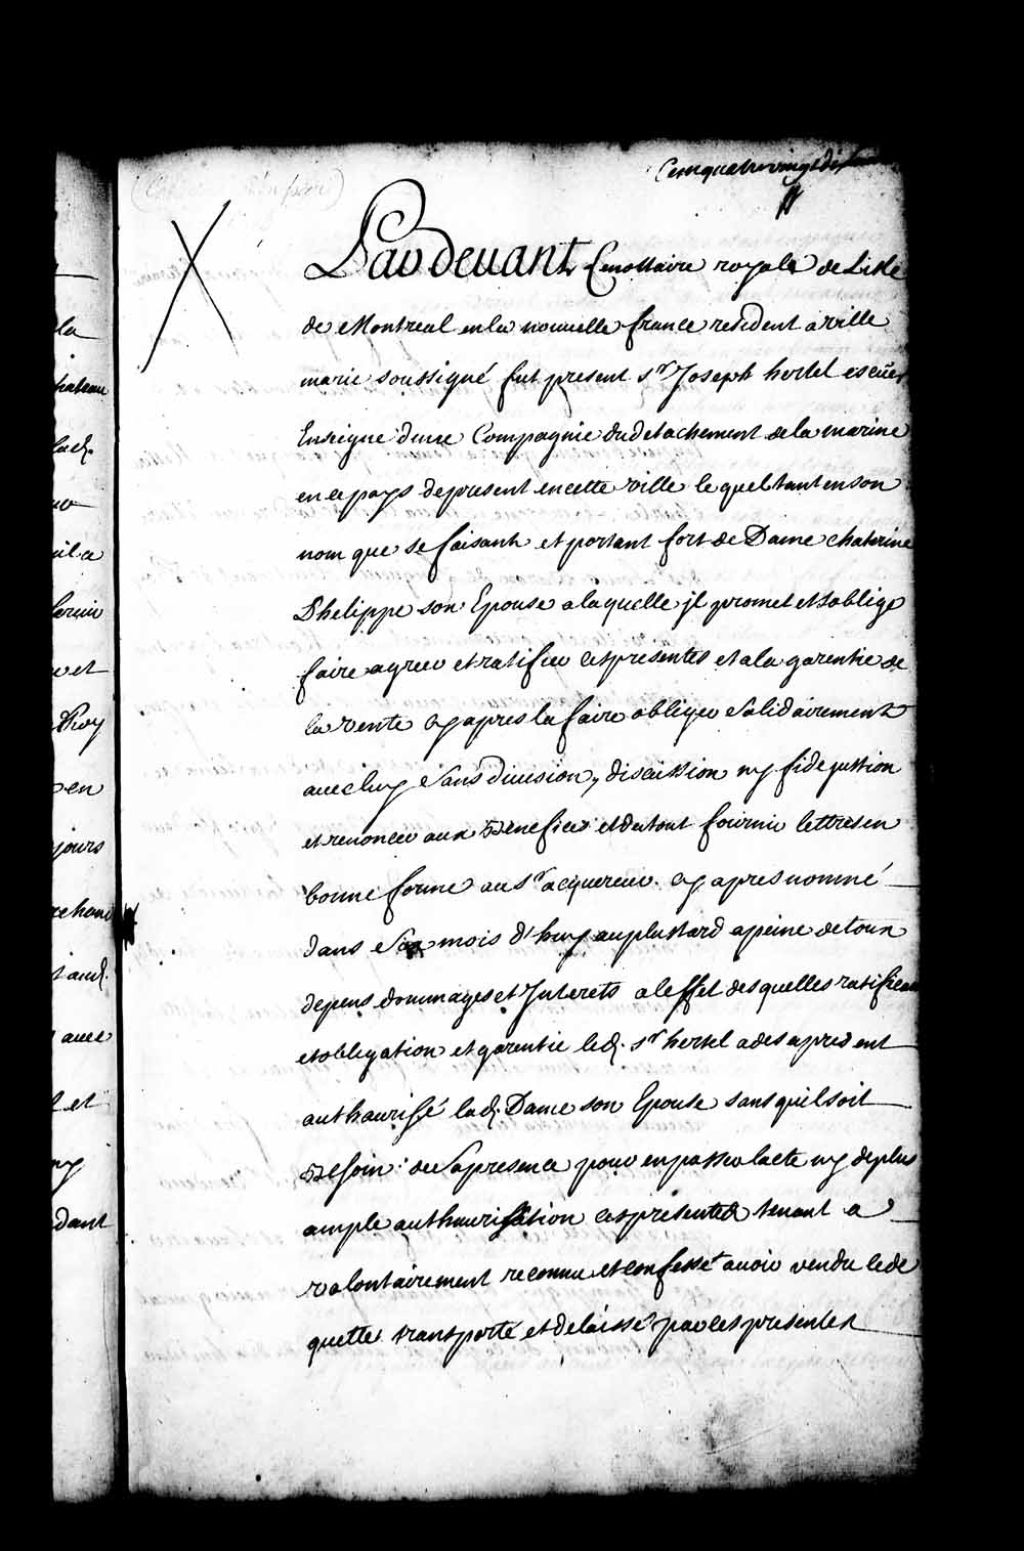 Cent quatre vingt dix
Pardevant Le nottaire royale de Lisle
de Montreal en la nouvelle france resident a ville
marie soussigné fut present sr. Joseph hertel escuer
Enseigne dune Compagnie du detachement de la marine
en ce pays de present en cette ville lequel tant en son
nom que se faisant et portant fort de Dame chaterine
Philippe son Epouse a laquelle jl promet et soblige
faire agreer et ratifier ces presentes et a la garentie de
la vente cy apres la faire obliger solidairement
avec luy sans division, discussion ny fidejussion
et renoncer aux Benefices et du tout fournir lettres en
bonne forme au sr. acquereur cy apres nommé
dans mois d'huy au plus tard a peine de tous
depens dommages et Interets a leffet desquelles ratification
et obligation et garentie led. sr. hertel a des a present
authaurisé lad. Dame son Epouse sans quil soit
Besoin de sa presence pour en passer lacte ny de plus
ample authaurisation ces presentes tenant a
volontairement reconnu et confessé avoir vendu cedé
quetté transporté et delaissé par ces presentes
la
hateau
lad.
il a
et
Roy
en
jours
rchand
aud.
avec
et
ny
dant